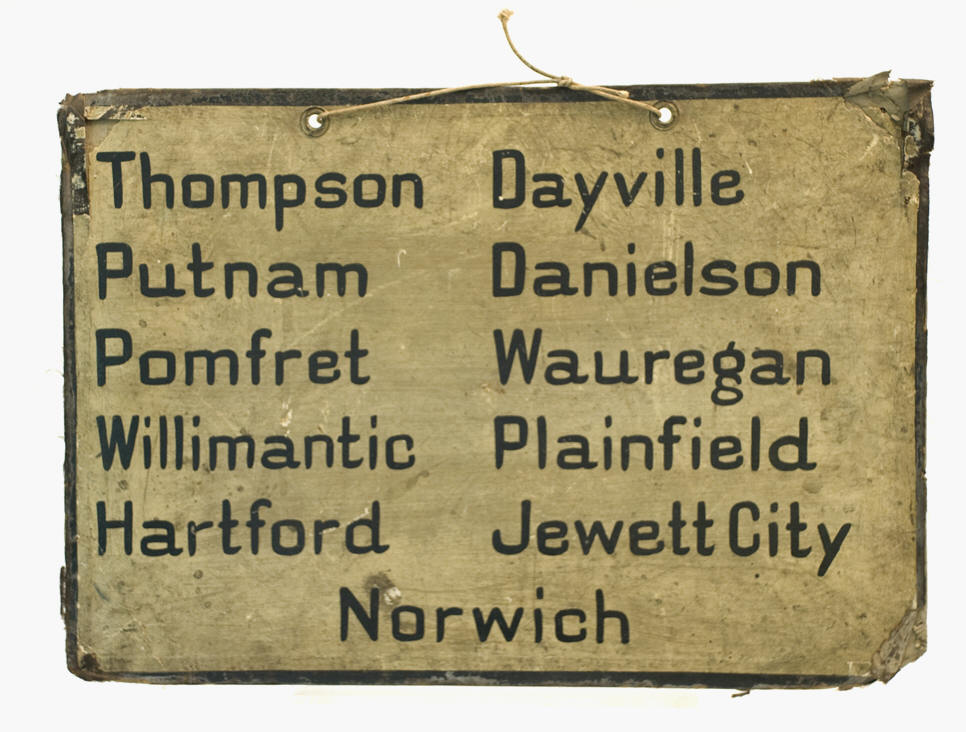 Thompson Dayville
Putnam Danielson
Pomfret Wauregan
Willimantic Plainfield
Hartford Jewett City
Norwich